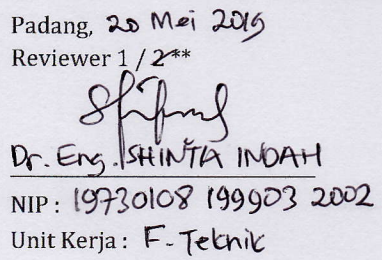 Padang, 20 Mei 2019
Reviewer 1 / 2**
Dr. Eng. SHINTA INDAH
NIP : 19730108 199903 2002
Unit Kerja : F. Teknik